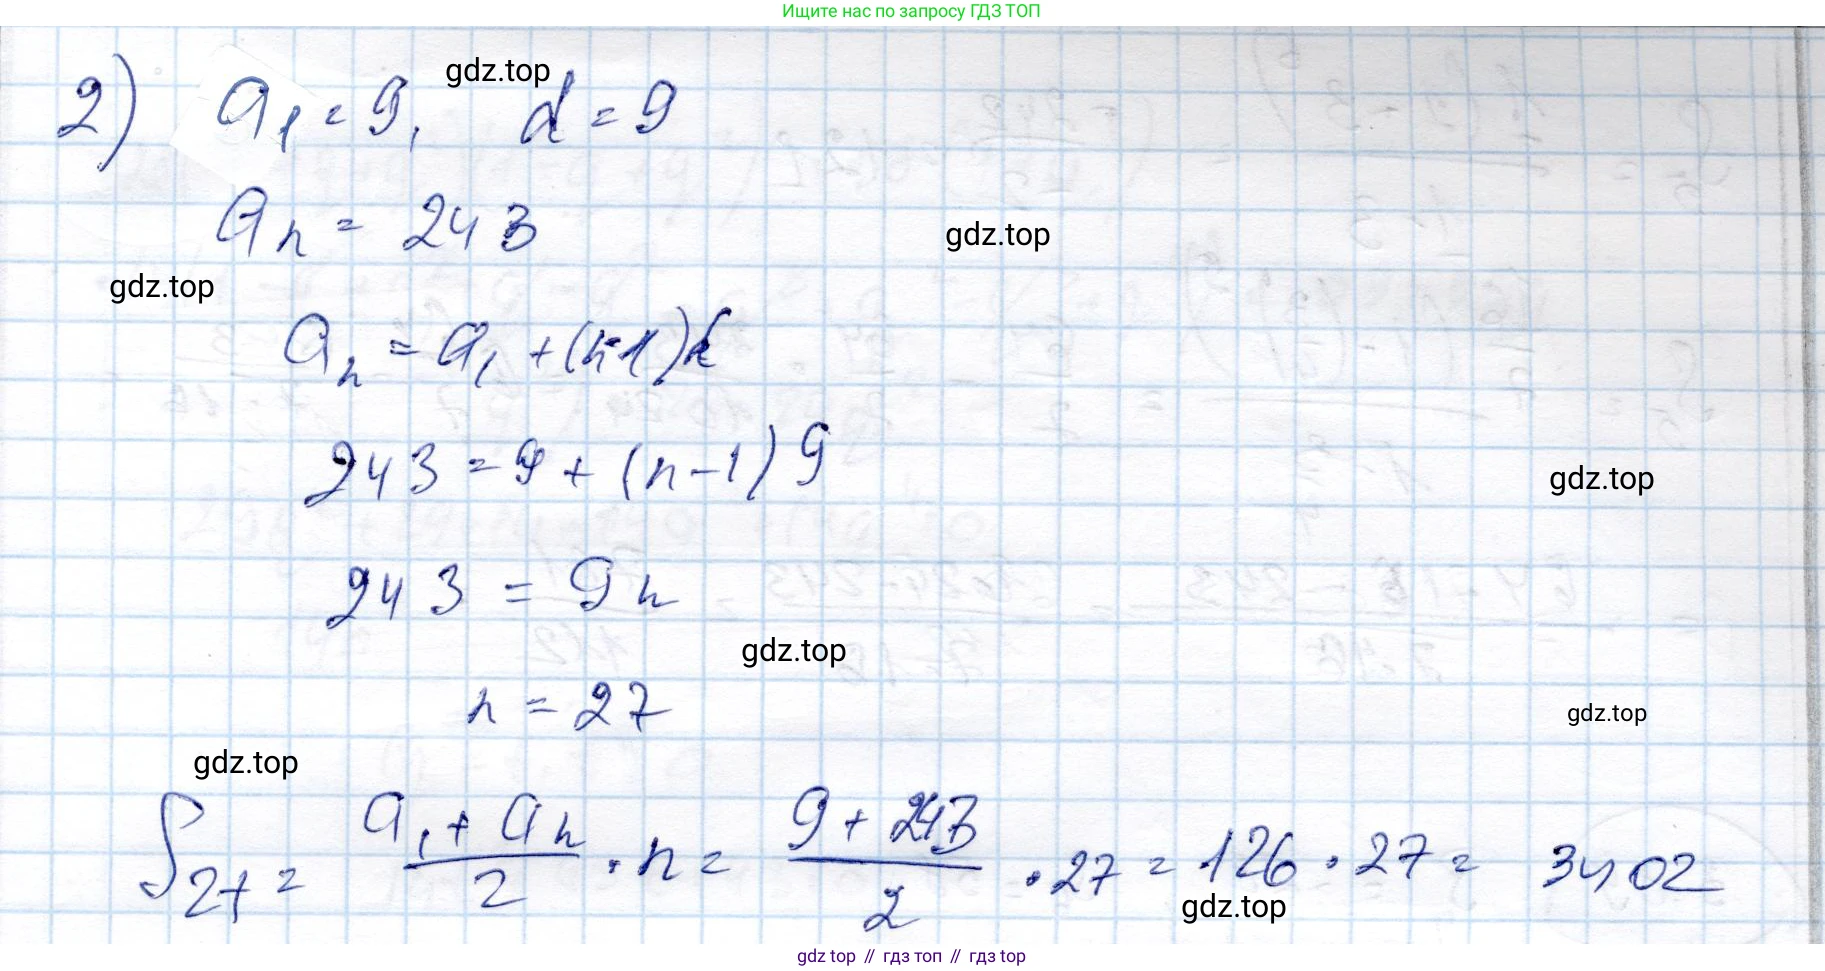 Ищите нас по запросу ГДЗ ТОП
2) a₁ = 9, d = 9
gdz.top
aₙ = 243
gdz.top
gdz.top
aₙ = a₁ + (n-1)d
243 = 9 + (n-1) 9
gdz.top
243 = 9n
gdz.top
n = 27
gdz.top
gdz.top
S₂₇ = (a₁ + aₙ)/2 · n = (9 + 243)/2 · 27 = 126 · 27 = 3402
gdz.top
gdz top // гдз топ // gdz top